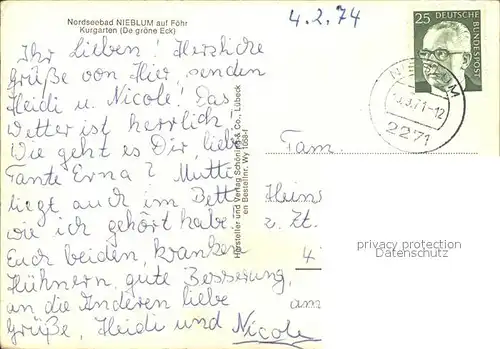 Nordseebad NIEBLUM auf Föhr
Kurgarten (De gröne Eck)
4.2.74
25 DEUTSCHE BUNDESPOST
NIEBLUM
-12
2271
Ihr Lieben! Herzliche
Grüße von Hier, senden
Heidi u. Nicole! Das
Wetter ist herrlich.
Wie geht es Dir, liebe
Tante Erna? Mutti
liegt auch im Bett
wie ich gehört habe.
Euch beiden, kranken
Hühnern, gute Besserung,
an die Anderen liebe
Grüße, Heidi und Nicole
Hersteller und Verlag Schöning & Co., Lübeck
en Bestellnr. Wy 1088-f
Fam.
Heins
z. Zt.
4
am
privacy protection
Datenschutz